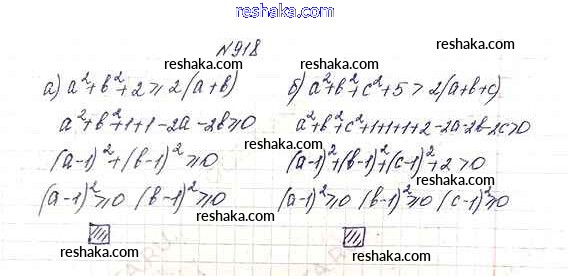 reshaka.com
№918 reshaka.com
reshaka.com
а) a²+b²+2≥2(a+b)
a²+b²+1+1-2a-2b≥0
(a-1)²+(b-1)²≥0
(a-1)²≥0 (b-1)²≥0
reshaka.com
reshaka.com
reshaka.com
б) a²+b²+c²+5>2(a+b+c)
a²+b²+c²+1+1+1+2-2a-2b-2c>0
(a-1)²+(b-1)²+(c-1)²+2>0
(a-1)²≥0 (b-1)²≥0 (c-1)²≥0
reshaka.com
reshaka.com
reshaka.com
reshaka.com